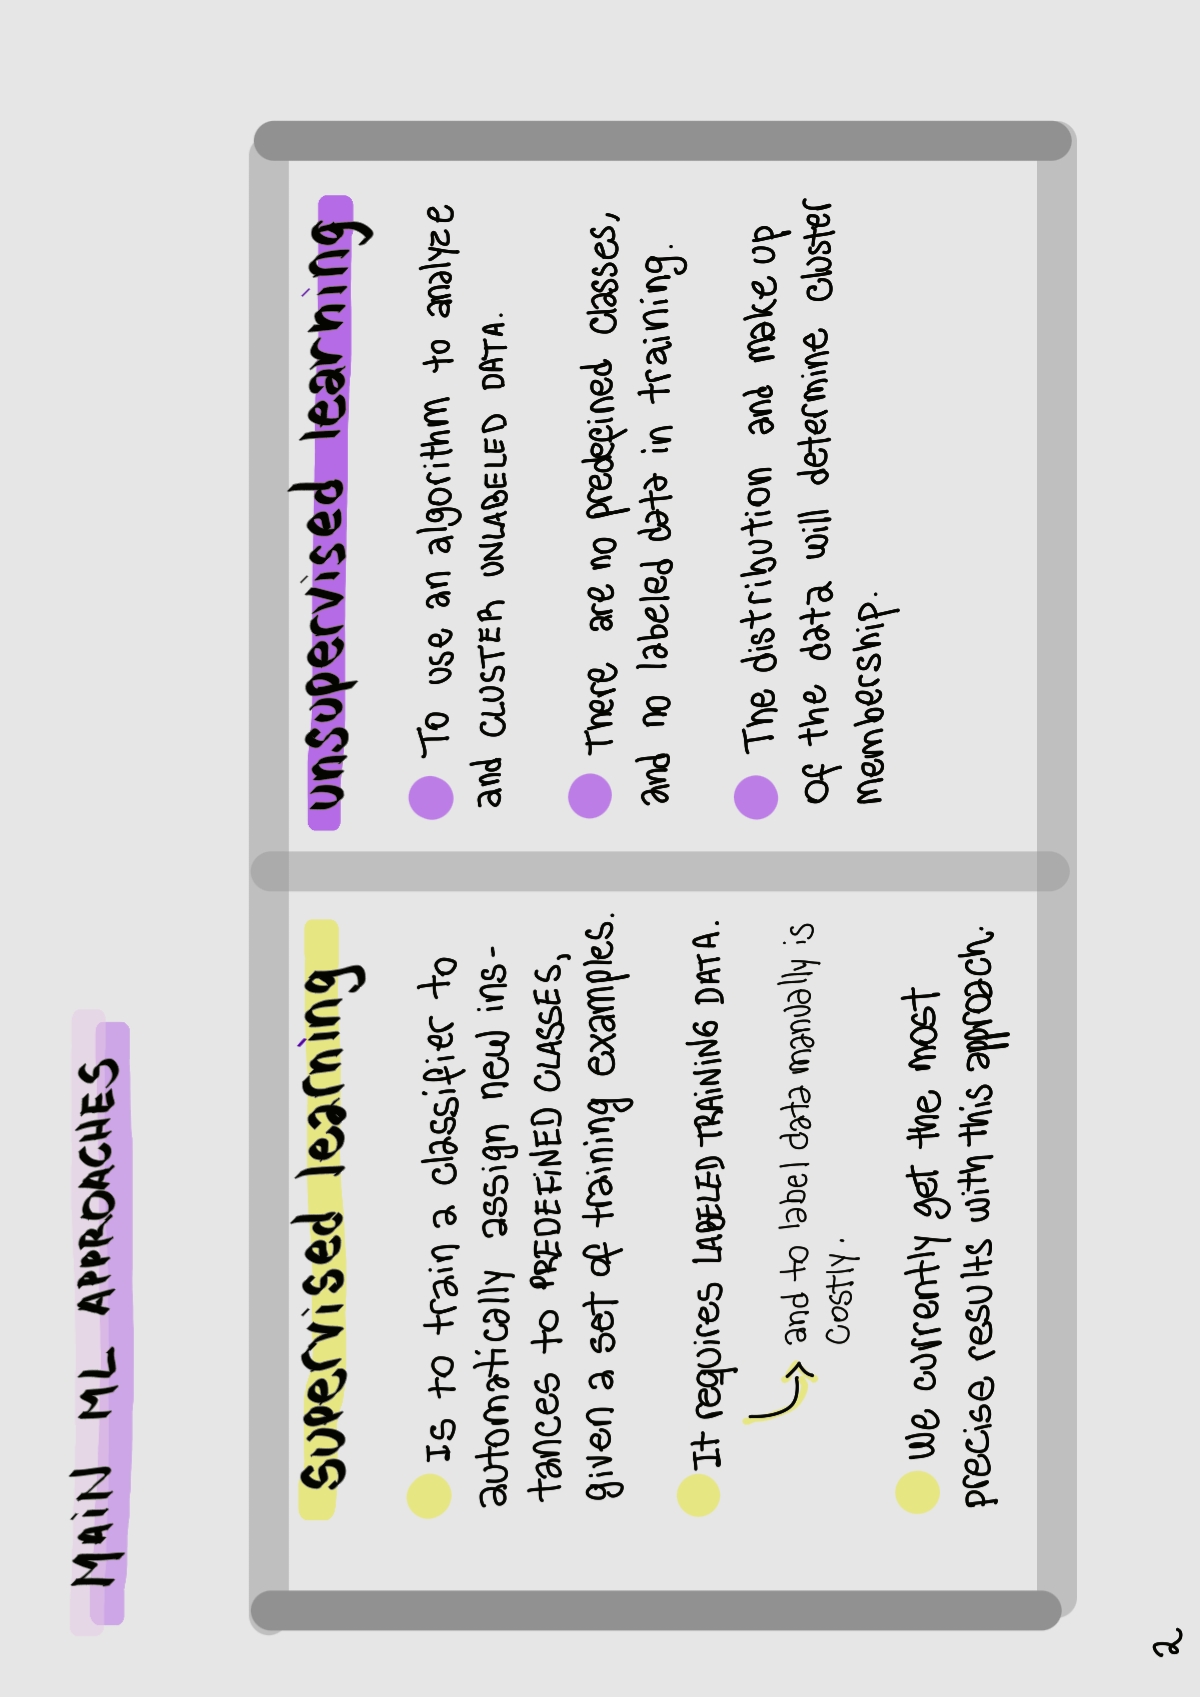 MAiN ML APPROACHES
supervised learning
Is to train a classifier to
automatically assign new ins-
tances to PREDEFiNED CLASSES,
given a set of training examples.
It requires LABELED TRAiNiNG DATA.
and to label data manually is
costly.
We currently get the most
precise results with this approach.
unsupervised learning
To use an algorithm to analyze
and CLUSTER UNLABELED DATA.
There are no predefined classes,
and no labeled data in training.
The distribution and make up
of the data will determine cluster
membership.
2